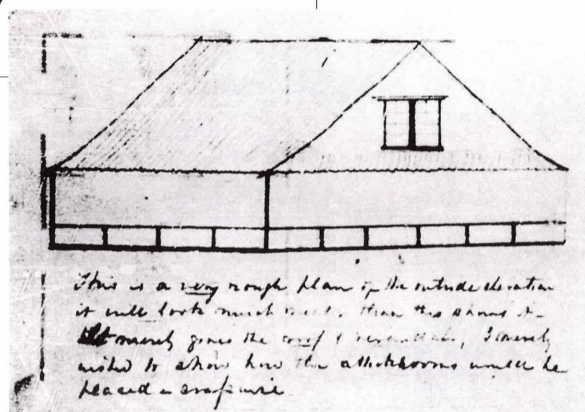 This is a very rough plan of the outside elevation
it will look much than this shows it
It merely gives the roof & verandah, I merely
wished to show how the would be
placed